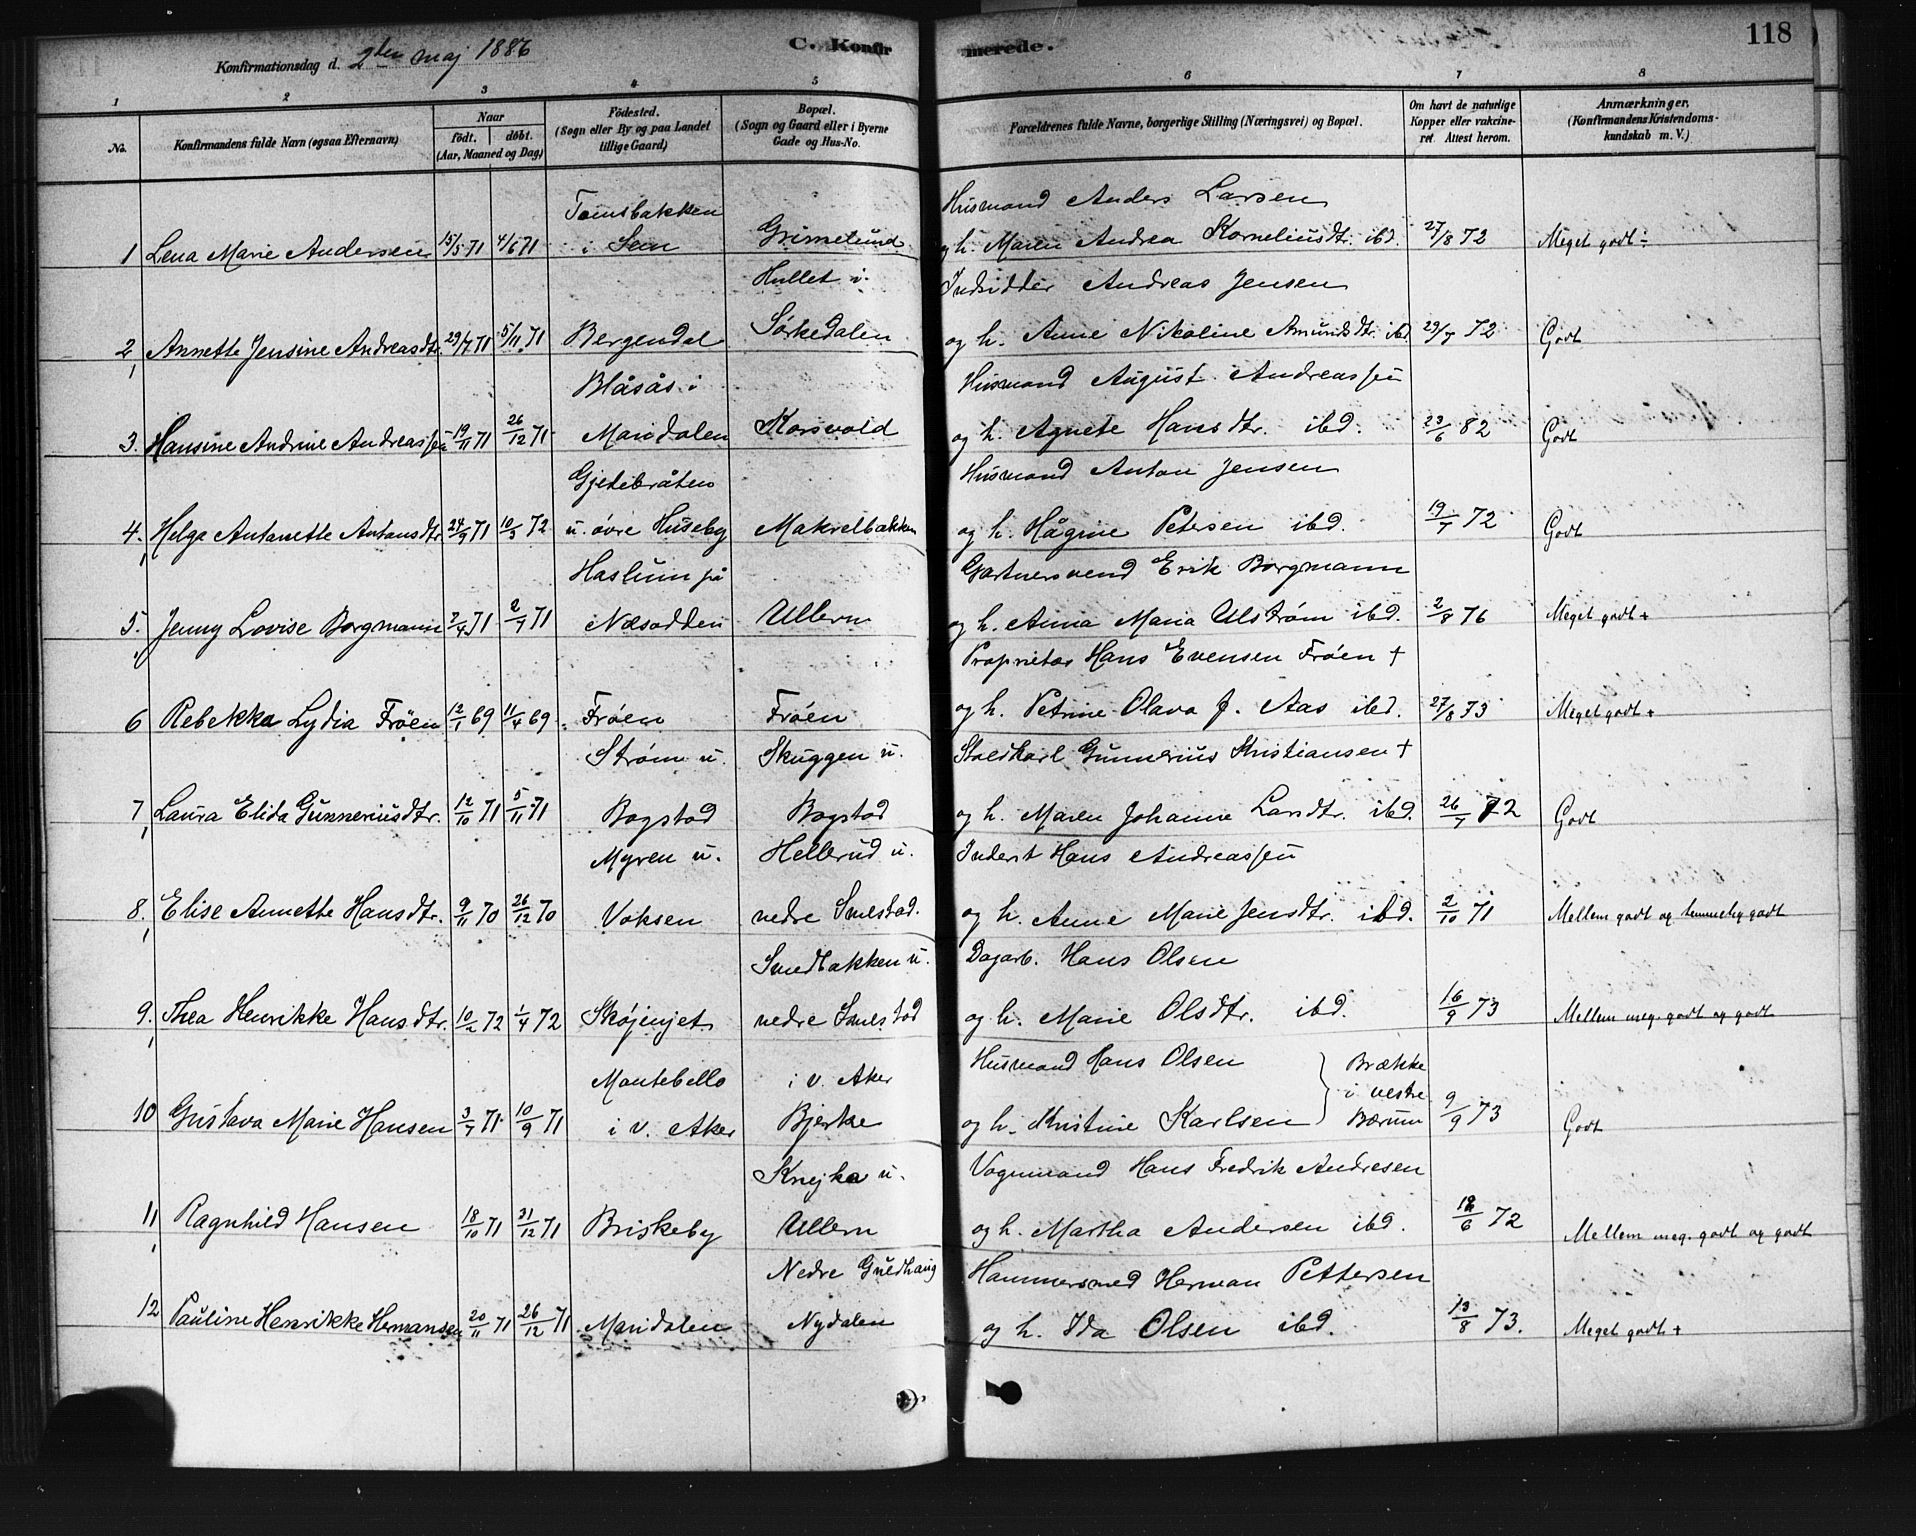 118
Konfirmationsdag d. 2den Maj 1886 C. Konfirmerede.
1 2 3 4 5 6 7 8
No. Konfirmandens fulde Navn (ogsaa Efternavn) Naar født. døbt. (Aar, Maaned og Dag) Fødested. (Sogn eller By og paa Landet tillige Gaard) Bopæl. (Sogn og Gaard eller i Byerne Gade og Hus-No. Forældrenes fulde Navne, borgerlige Stilling (Næringsvei) og Bopæl. Om havt de naturlige Kopper eller vakcineret Attest herom. Anmærkninger. (Konfirmandens Kristendomskundskab m. V.)
Husmand Anders Larsen
1 Lena Marie Andersen 15/5 71 4/6 71 i Sem Grimelund og h. Maren Andrea Korneliusdtr. ibd. 27/8 72 Meget godt ÷
Hullet i Indsidder Andreas Jensen
2 Annette Jensine Andreasdtr. 29/7 71 5/11 71 Bergendal Sørkedalen og h. Anne Nikoline Amundsdtr. ibd 29/7 72 Godt
Blåsås i Husmand August Andreassen
3. Hansine Andrine Andreassen 19/11 71 26/12 71 Maridalen Korsvold og h. Agnete Hansdtr. ibd. 23/6 82 Godt
Gjetebråten Husmand Anton Jensen
4. Helga Antonette Antonsdtr. 24/9 71 10/3 72 u. øvre Huseby Makrelbakken og h. Hågine Petersen ibd. 19/7 72 Godt
Haslum på Gartnersvend Erik Borgmann
5. Jenny Lovise Borgmann 7/4 71 2/7 71 Næsodden Ullern og h. Anna Maria Alstrøm ibd. 2/8 76 Meget godt +
Proprietær Hans Evensen Frøen †
6 Rebekka Lydia Frøen 12/1 69 11/4 69 Frøen Frøen og h. Petrine Olava f. Aas ibd. 27/8 73 Meget godt +
Strøm u. Skuggen u. Staldkarl Gunnerius Kristiansen †
7 Laura Elida Gunneriusdtr. 12/10 71 5/11 71 Bogstad Bogstad og h. Maren Johanne Larsdtr. ibd. 26/7 72 Godt
Myren u. Hellerud u. Inderst Hans Andreassen
8. Elise Annette Hansdtr. 9/11 70 26/12 70 Voksen nedre Smestad. og h. Anne Marie Jensdtr. ibd. 2/10 71 Mellem godt og temmelig godt
Smedbakken u. Dagarb. Hans Olsen
9. Thea Henrikke Hansdtr. 10/2 72 1/4 72 Skøjenjet nedre Smestad og h. Marie Olsdtr. ibd. 16/9 73 Mellem meg. godt og godt
Montebello i v. Aker Husmand Hans Olsen } Brække i vestre Bærum
10 Gustava Marie Hansen 3/7 71 10/9 71 i v. Aker Bjerke og h. Kristine Karlsen 9/9 73 Godt
Knejka u. Vognmand Hans Fredrik Andresen
11 Ragnhild Hansen 18/10 71 31/12 71 Briskeby Ullern og h. Martha Andersen ibd. /6 72 Mellem meg. godt og godt
Nedre Guldhaug Hammersmed Herman Pettersen
12 Pauline Henrikke Hermansen 20/11 71 26/12 71 Maridalen Nydalen og h. Ida Olsen ibd. 13/8 73. Meget godt +